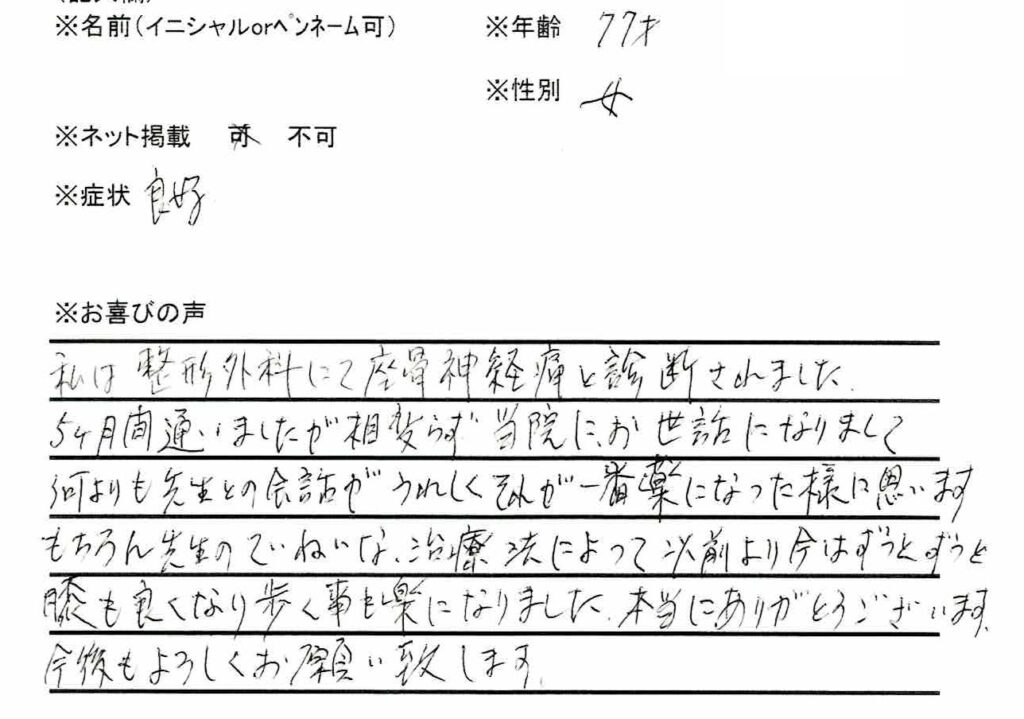 ※名前(イニシャルorペンネーム可)
※年齢 77才
※性別 女
※ネット掲載 可 不可
※症状 良好
※お喜びの声
私は整形外科にて座骨神経痛と診断されました.
5ヶ月間通いましたが相変らず当院に、お世話になりまして
何よりも先生との会話がうれしくそれが一番薬になった様に思います
もちろん先生のていねいな、治療法によって以前より今はずうとずうと
膝も良くなり歩く事も楽になりました.本当にありがとうございます.
今後もよろしくお願い致します.